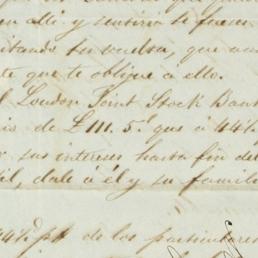 en allí y sentiría te fueses
tu vuelta, que
te que te oblique á ello.
l London Joint Stock Bank
de £111.5d que á 44½
sus intereses hasta fin del
il, dale á él y su familia
44½ p% de los particulares